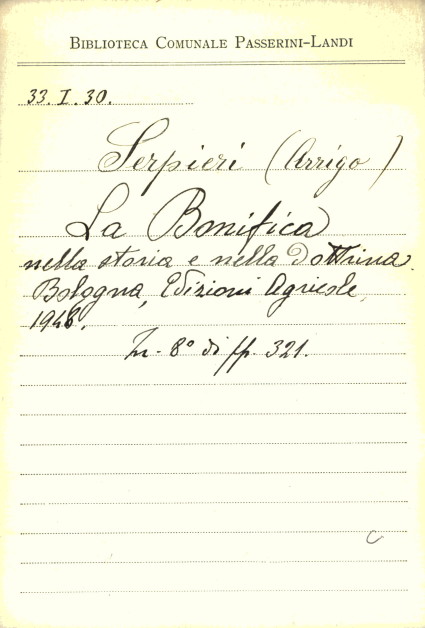 BIBLIOTECA COMUNALE PASSERINI-LANDI
33. I. 30.
Serpieri (Arrigo)
La Bonifica
nella storia e nella dottrina.
Bologna, Edizioni Agricole,
1948.
In-8° di pp. 321.
C